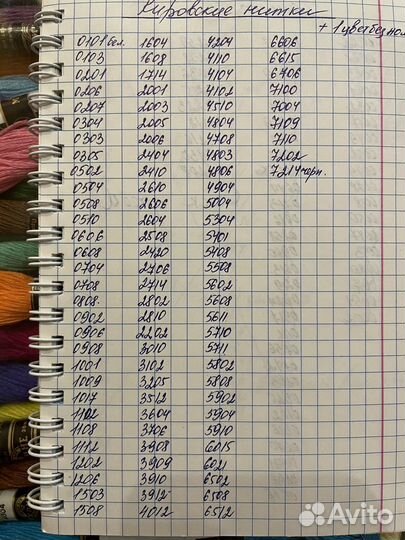 Кировские нитки
+ 1 цвет без ном
0101 бел. 1604 4204 6606
0103 1608 4110 6615
0201 1714 4104 6706
0206 2001 4102 7100
0207 2003 4510 7004
0304 2005 4804 7109
0303 2006 4708 7110
0305 2404 4803 7202
0502 2410 4806 7214 черн.
0504 2610 4904
0508 2606 5004
0510 2604 5304
0606 2508 5401
0608 2420 5408
0704 2706 5508
0708 2714 5602
0808 2802 5608
0902 2810 5611
0906 2202 5710
0908 3010 5711
1001 3102 5802
1009 3205 5808
1017 3512 5902
1102 3604 5904
1108 3706 5910
1112 3908 6015
1202 3909 6021
1206 3910 6502
1503 3912 6508
1508 4012 6512
Avito